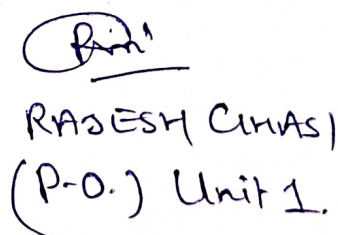 RAJESH GHASI
(P.O.) Unit 1.